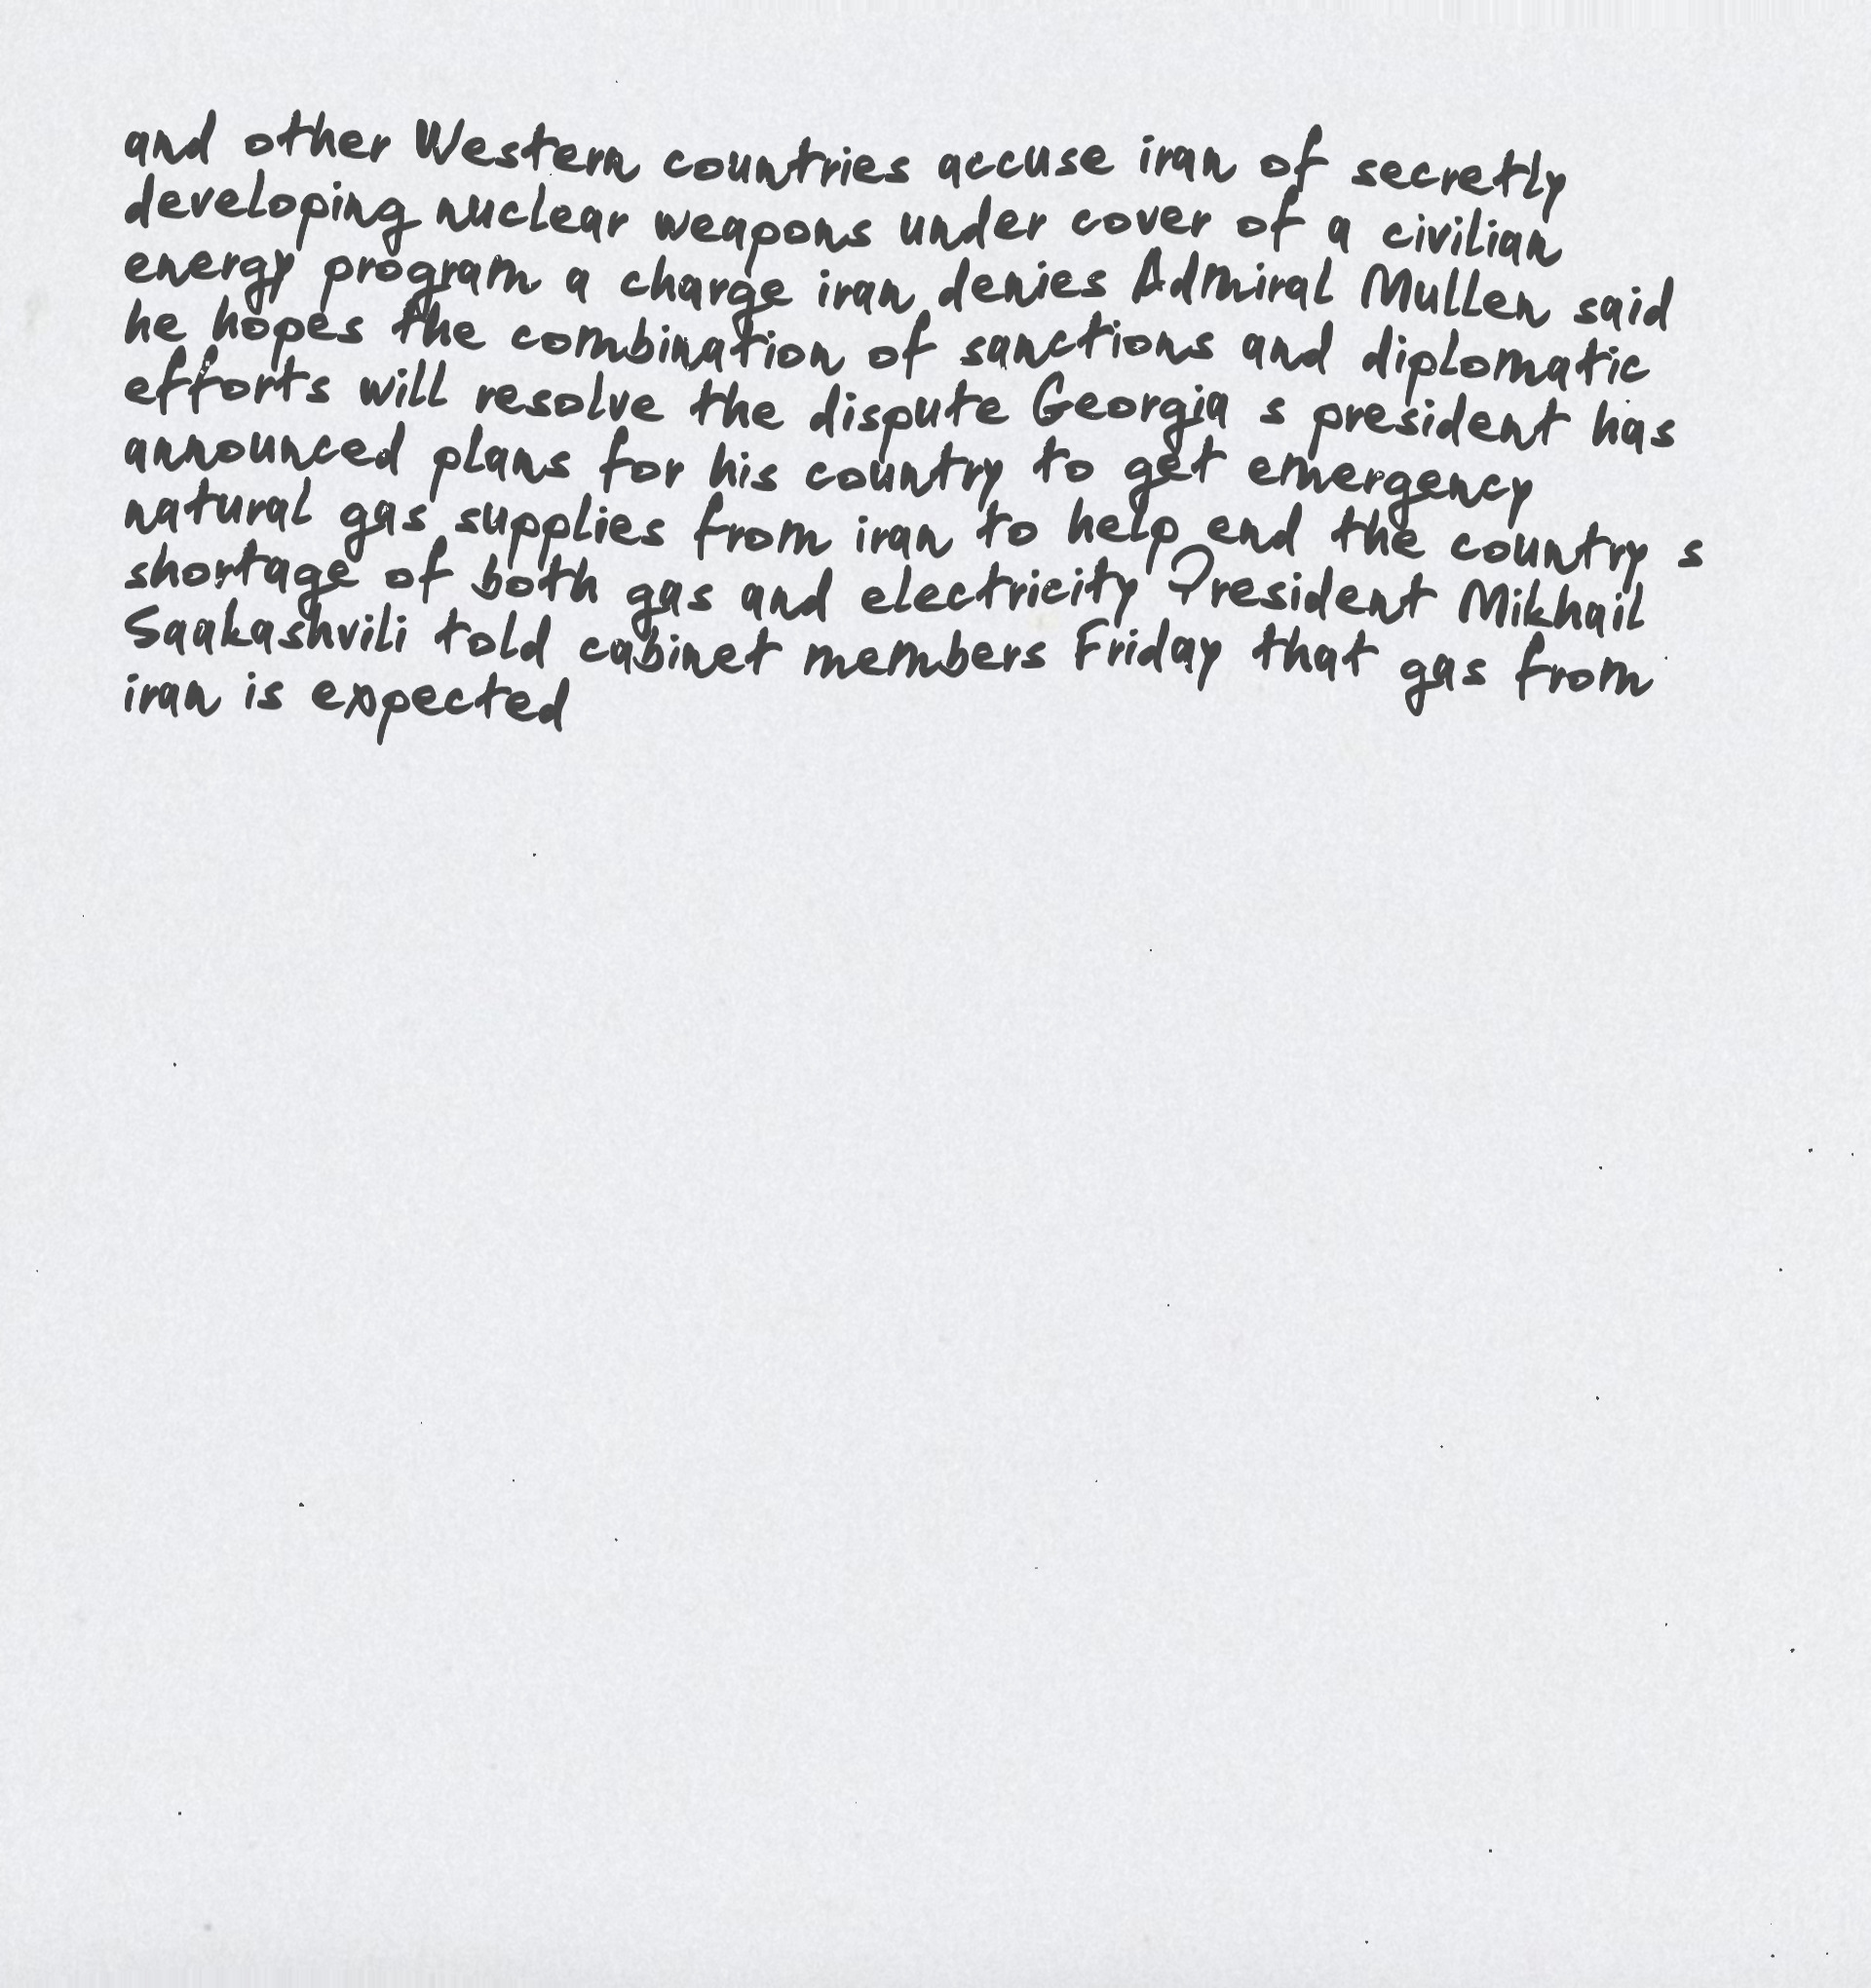 and other Western countries accuse iran of secretly
developing nuclear weapons under cover of a civilian
energy program a charge iran denies Admiral Mullen said
he hopes the combination of sanctions and diplomatic
efforts will resolve the dispute Georgia s president has
announced plans for his country to get emergency
natural gas supplies from iran to help end the country s
shortage of both gas and electricity President Mikhail
Saakashvili told cabinet members Friday that gas from
iran is expected